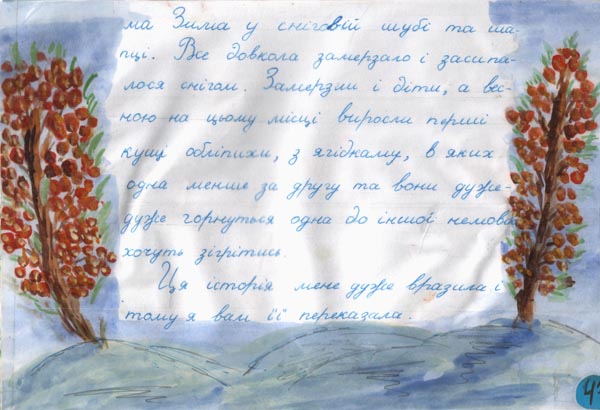 ма Зима у сніговій шубі та ша-
пці. Все довкола замерзало і засипа-
лося снігом. Замерзли і діти, а вес-
ною на цьому місці виросли перші
кущі обліпихи, з ягідками, в яких
одна менше за другу та вони дуже-
дуже горнуться одна до іншої немов
хочуть зігрітись.
Ця історія мене дуже вразила і
тому я вам її переказала.